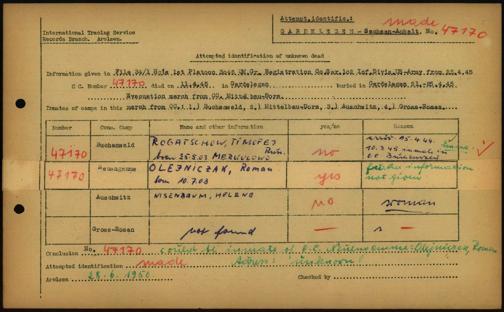 International Tracing Service
Records Branch. Arolsen.
Attempt.identific.: made
GARDELEGEN - Sachsen-Anhalt. No. 47170
Attempted identification of unknown dead
Information given in File
C C. Number 47170 died on 11.4.45 in Gardelegen buried in Gardelegen 21.-25.4.45
Evacuation march from CC. Mittelbau-Dora.
Inmates of camps in this march from CC.: 1.) Buchenwald, 2.) Mittelbau-Dora, 3.) Auschwitz, 4.) Gross-Rosen.
Number Conc. Camp Name and other information yes/no Reason
47170 Buchenwald ROGATSCHOW, TIMOFEJ
born 25.5.03 no
47170 Neuengamme OLEJNICZAK, Roman
born 10.7.03 yes further information
not given
Auschwitz NISENBAUM, HELENE no woman
Gross-Rosen not found — —
Conclusion No. 47170 could be inmate of C.C. Neuengamme: Olejniczak, Roman
Attempted identification made
Arolsen 28.6.1950 Checked by